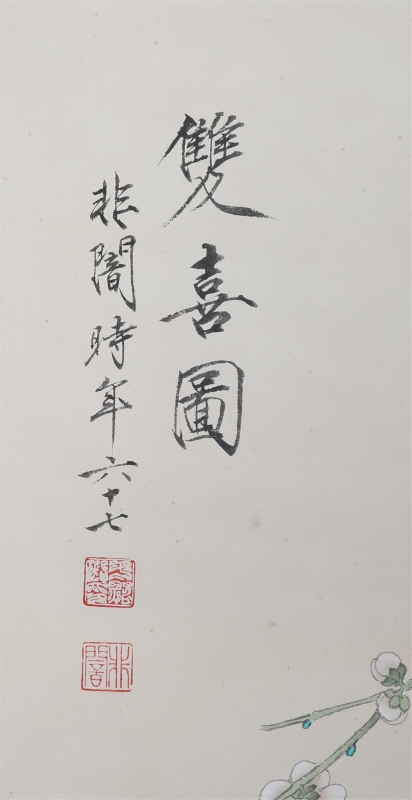 雙喜圖
非闇時年六十七